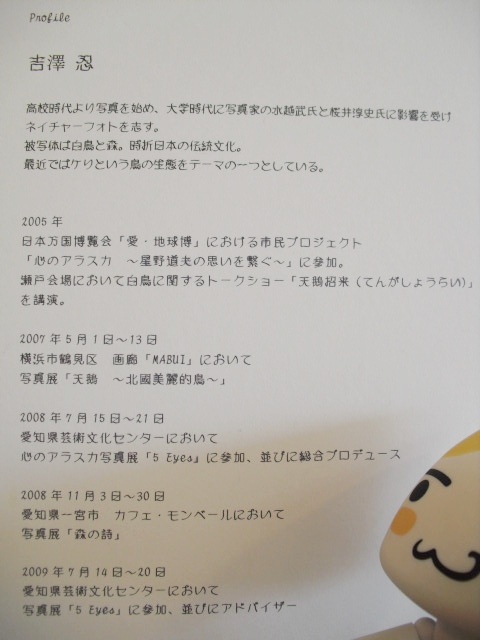 Profile
吉澤 忍
高校時代より写真を始め、大学時代に写真家の水越武氏と桜井淳史氏に影響を受け
ネイチャーフォトを志す。
被写体は白鳥と森。時折日本の伝統文化。
最近ではケリという鳥の生態をテーマの一つとしている。
2005年
日本万国博覧会「愛・地球博」における市民プロジェクト
「心のアラスカ ～星野道夫の思いを繋ぐ～」に参加。
瀬戸会場において白鳥に関するトークショー「天鵝招来（てんがしょうらい）」
を講演。
2007年5月1日～13日
横浜市鶴見区 画廊「MABUI」において
写真展「天鵝 ～北國美麗的鳥～」
2008年7月15日～21日
愛知県芸術文化センターにおいて
心のアラスカ写真展「5 Eyes」に参加、並びに総合プロデュース
2008年11月3日～30日
愛知県一宮市 カフェ・モンペールにおいて
写真展「森の詩」
2009年7月14日～20日
愛知県芸術文化センターにおいて
写真展「5 Eyes」に参加、並びにアドバイザー